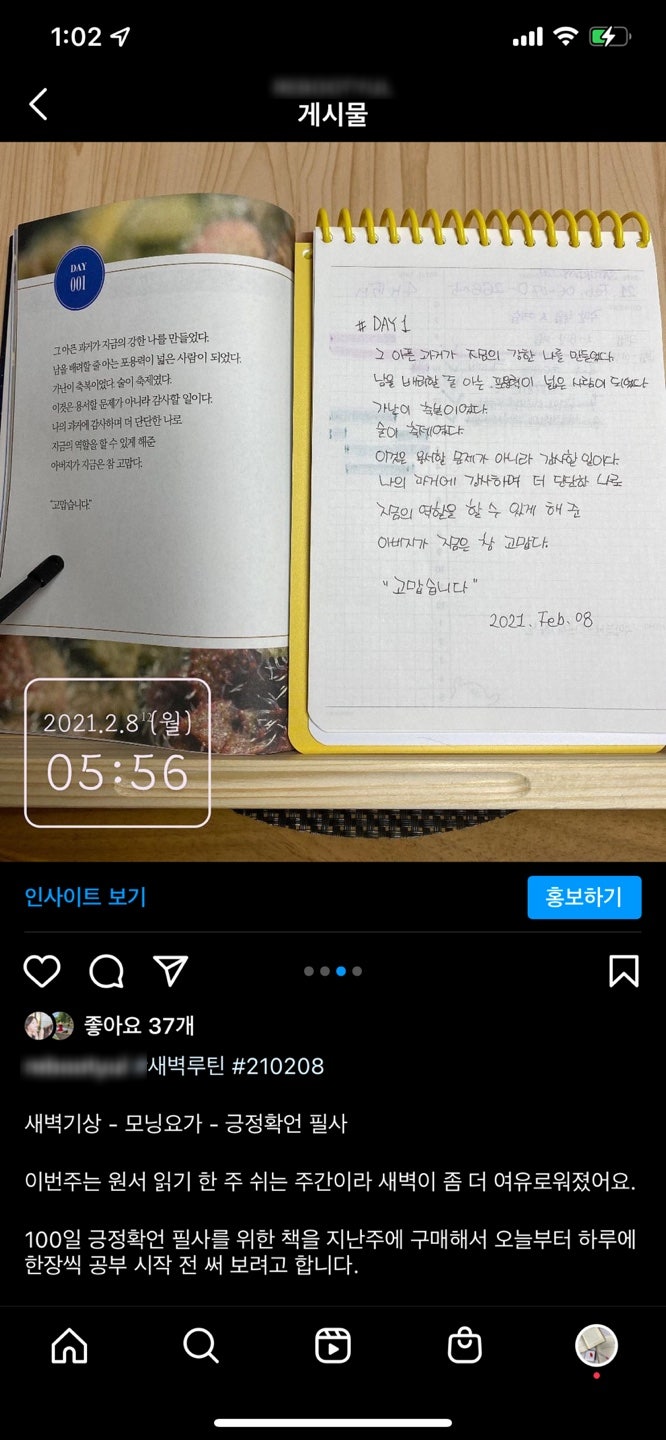 1:02
게시물
DAY
001
그 아픈 과거가 지금의 강한 나를 만들었다.
남을 배려할 줄 아는 포용력이 넓은 사람이 되었다.
가난이 축복이었다. 술이 축제였다.
이것은 용서할 문제가 아니라 감사할 일이다.
나의 과거에 감사하며 더 단단한 나로
지금의 역할을 할 수 있게 해준
아버지가 지금은 참 고맙다.
"고맙습니다."
# DAY 1
그 아픈 과거가 지금의 강한 나를 만들었다.
남을 배려할 줄 아는 포용력이 넓은 사람이 되었다
가난이 축복이었다.
술이 축제였다.
이것은 용서할 문제가 아니라 감사할 일이다.
나의 과거에 감사하며 더 단단한 나로
지금의 역할을 할 수 있게 해 준
아버지가 지금은 참 고맙다.
"고맙습니다"
2021. Feb. 08
2021.2.8 (월)
05:56
인사이트 보기
홍보하기
좋아요 37개
#새벽루틴 #210208
새벽기상 - 모닝요가 - 긍정확언 필사
이번주는 원서 읽기 한 주 쉬는 주간이라 새벽이 좀 더 여유로워졌어요.
100일 긍정확언 필사를 위한 책을 지난주에 구매해서 오늘부터 하루에
한장씩 공부 시작 전 써 보려고 합니다.